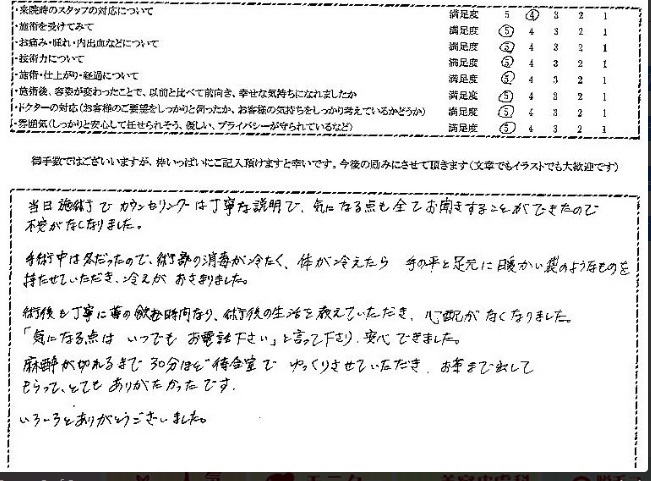 ・来院時のスタッフの対応について 満足度 5 4 3 2 1
・施術を受けてみて 満足度 5 4 3 2 1
・お痛み・腫れ・内出血などについて 満足度 5 4 3 2 1
・技術力について 満足度 5 4 3 2 1
・施術・仕上がり・経過について 満足度 5 4 3 2 1
・施術後、容姿が変わったことで、以前と比べて前向き、幸せな気持ちになれましたか 満足度 5 4 3 2 1
・ドクターの対応(お客様のご要望をしっかりと伺ったか、お客様の気持ちをしっかり考えているかどうか) 満足度 5 4 3 2 1
・雰囲気(しっかりと安心して任せられそう、優しい、プライバシーが守られているなど) 満足度 5 4 3 2 1
御手数ではございいますが、枠いっぱいにご記入頂けますと幸いです。今後の励みにさせて頂きます(文章でもイラストでも大歓迎です)
当日施術でカウンセリングは丁寧な説明で、気になる点も全てお聞きすることができたので
不安がなくなりました。
手術中は冬だったので、術部の消毒が冷たく、体が冷えたら 手の平と足元に暖かい袋のようなものを
持たせていただき、冷えがおさまりました。
術後も丁寧に薬の飲む時間なり、術後の生活を教えていただき、心配がなくなりました。
「気になる点は いつでも お電話下さい」と言って下さり、安心できました。
麻酔が切れるまで 30分ほど待合室で ゆっくりさせていただき、お茶まで出して
もらって、とても ありがたかったです。
いろいろとありがとうございました。